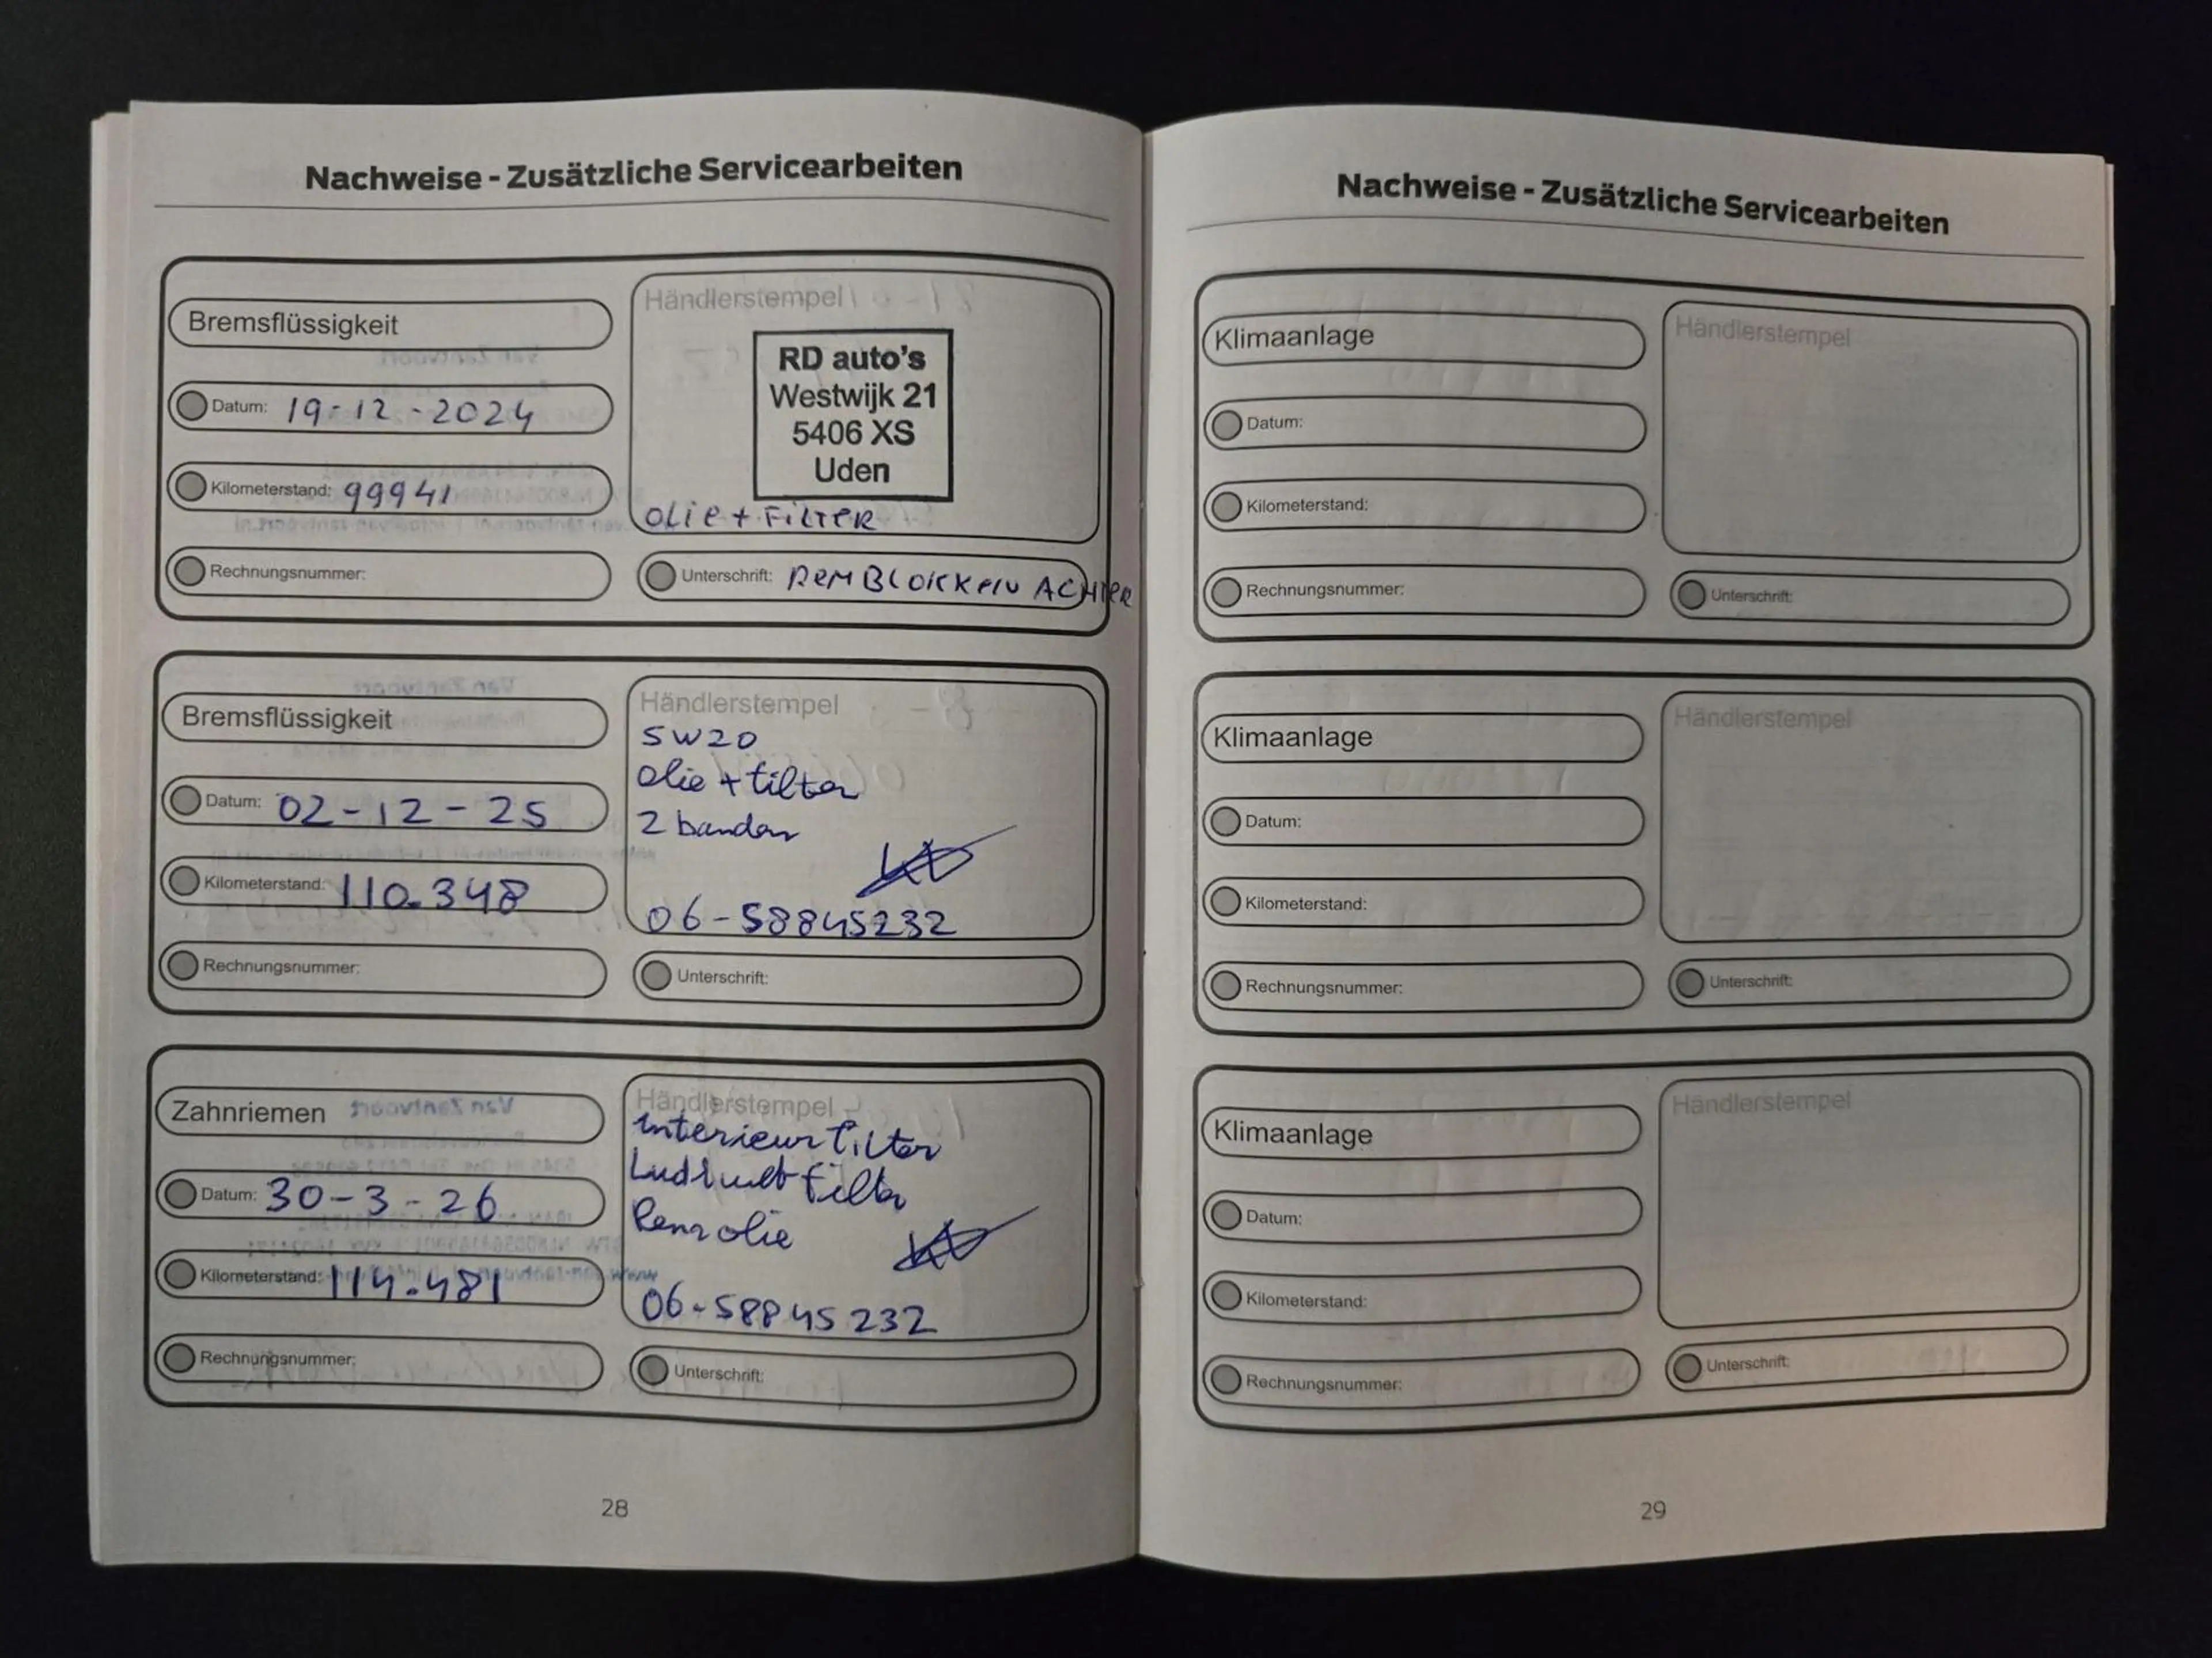 Nachweise - Zusätzliche Servicearbeiten
Bremsflüssigkeit
Datum: 19-12-2024
Kilometerstand: 99941
Rechnungsnummer:
Händlerstempel
RD auto's
Westwijk 21
5406 XS
Uden
OLIE + FILTER
Unterschrift: REMBLOKKEN ACHTER
Bremsflüssigkeit
Datum: 02-12-25
Kilometerstand: 110.348
Rechnungsnummer:
Händlerstempel
5W20
olie + filter
2 banden
06-58845232
Unterschrift:
Zahnriemen
Datum: 30-3-26
Kilometerstand: 114.481
Rechnungsnummer:
Händlerstempel
interieur filter
filter
Rem olie
06-58845232
Unterschrift:
28
Nachweise - Zusätzliche Servicearbeiten
Klimaanlage
Datum:
Kilometerstand:
Rechnungsnummer:
Händlerstempel
Unterschrift:
Klimaanlage
Datum:
Kilometerstand:
Rechnungsnummer:
Händlerstempel
Unterschrift:
Klimaanlage
Datum:
Kilometerstand:
Rechnungsnummer:
Händlerstempel
Unterschrift:
29